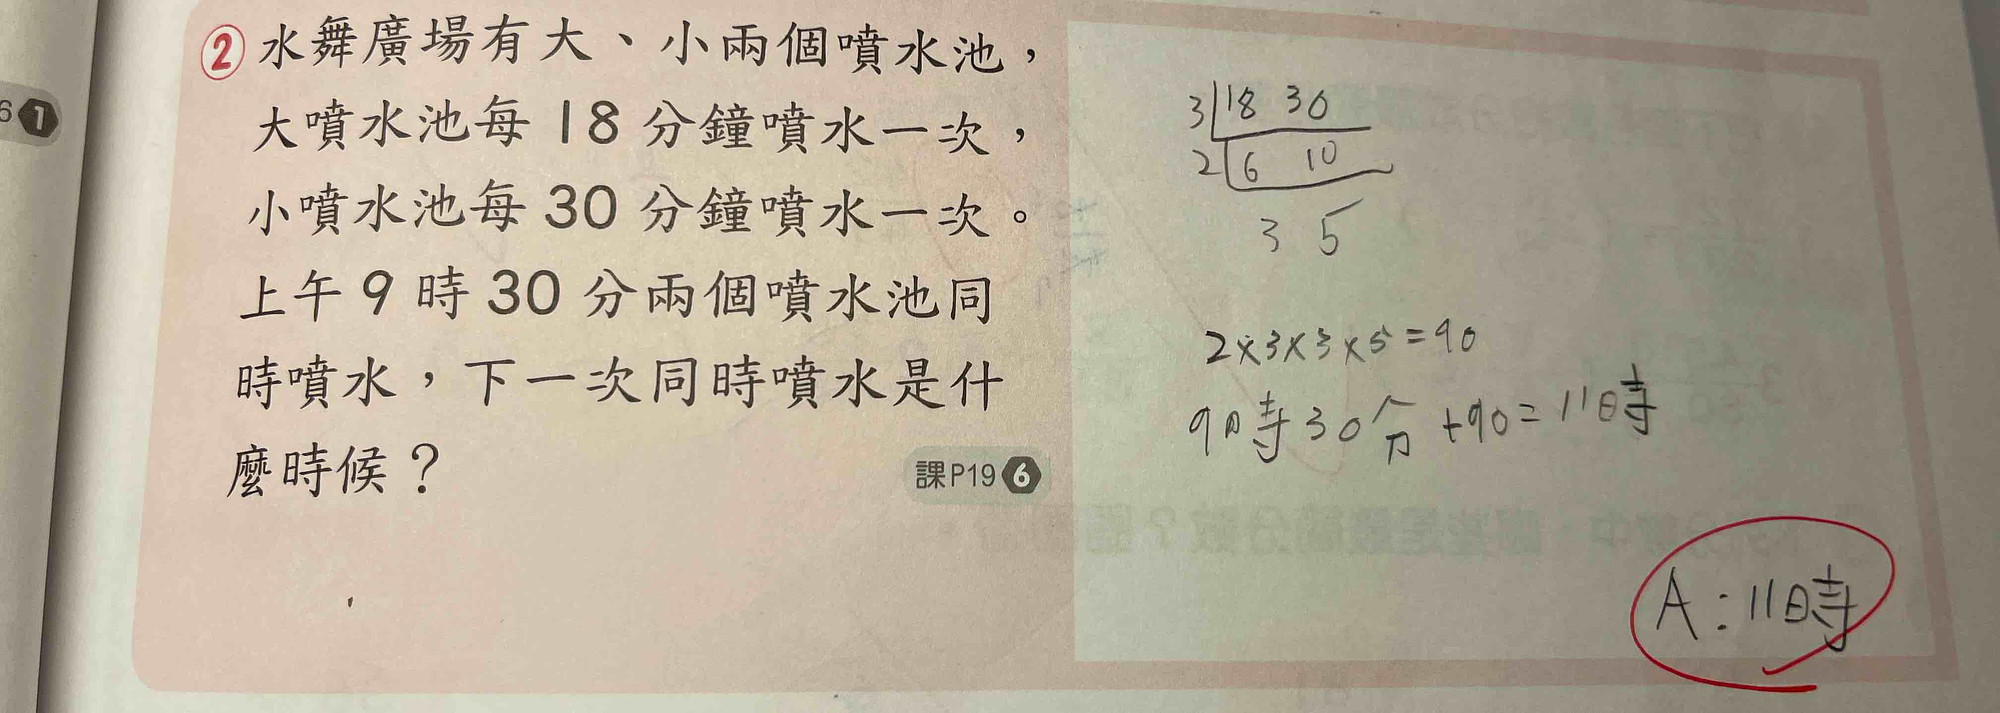 6 1
② 水舞廣場有大、小兩個噴水池，
大噴水池每 18 分鐘噴水一次，
小噴水池每 30 分鐘噴水一次。
上午 9 時 30 分兩個噴水池同
時噴水，下一次同時噴水是什
麼時候？
課P19 6
3 18 30
2 6 10
3 5
2×3×3×5=90
9時30分+90=11時
A:11時